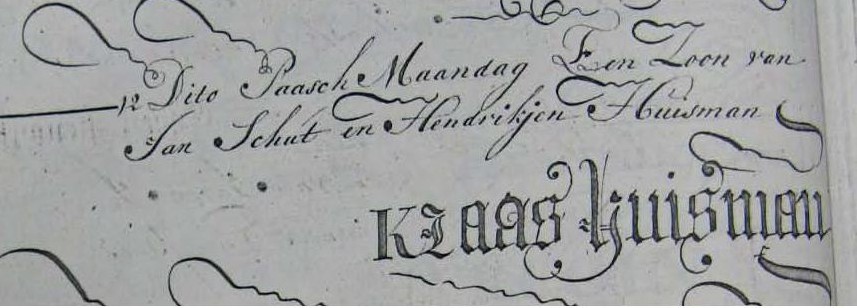 12 Dito Paasch Maandag Een Zoon van
Jan Schut en Hendrikjen Huisman
Klaas Huisman